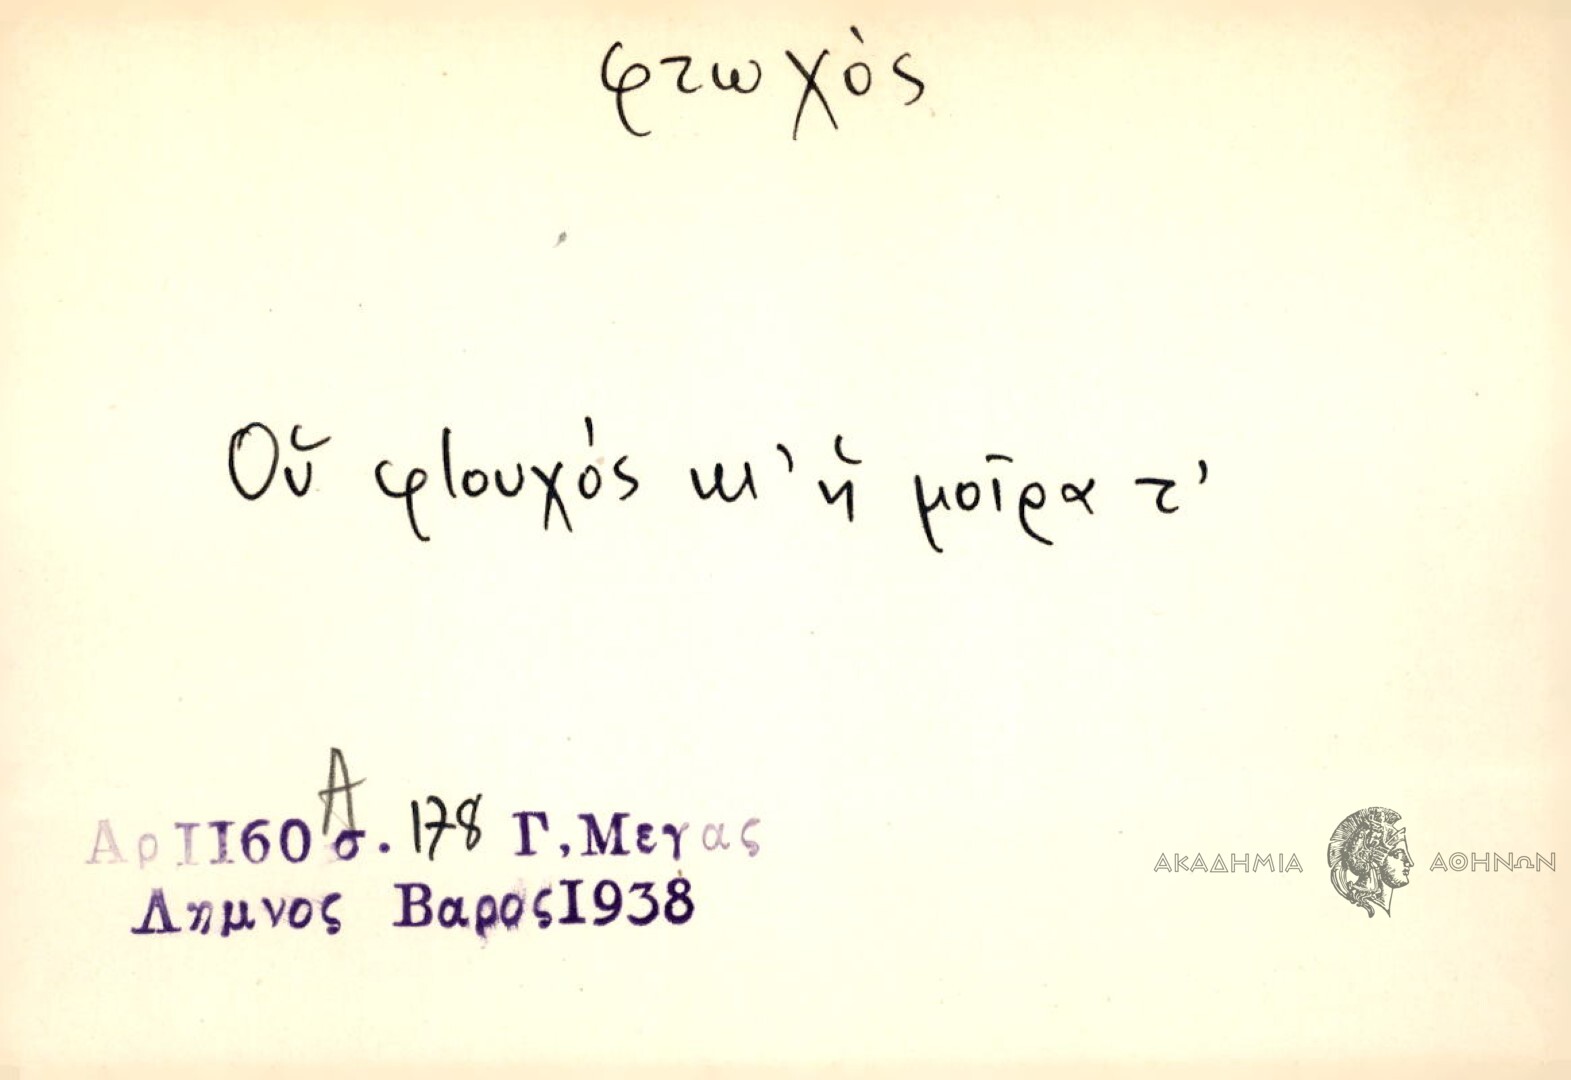 φτωχὸς
Οὑ φτουχός κι' ἡ μοῖρα τ'
Αρ II60 Α σ. 178 Γ. Μεγας
Λημνος Βαρος I938
ΑΚΑΔΗΜΙΑ ΑΘΗΝΩΝ